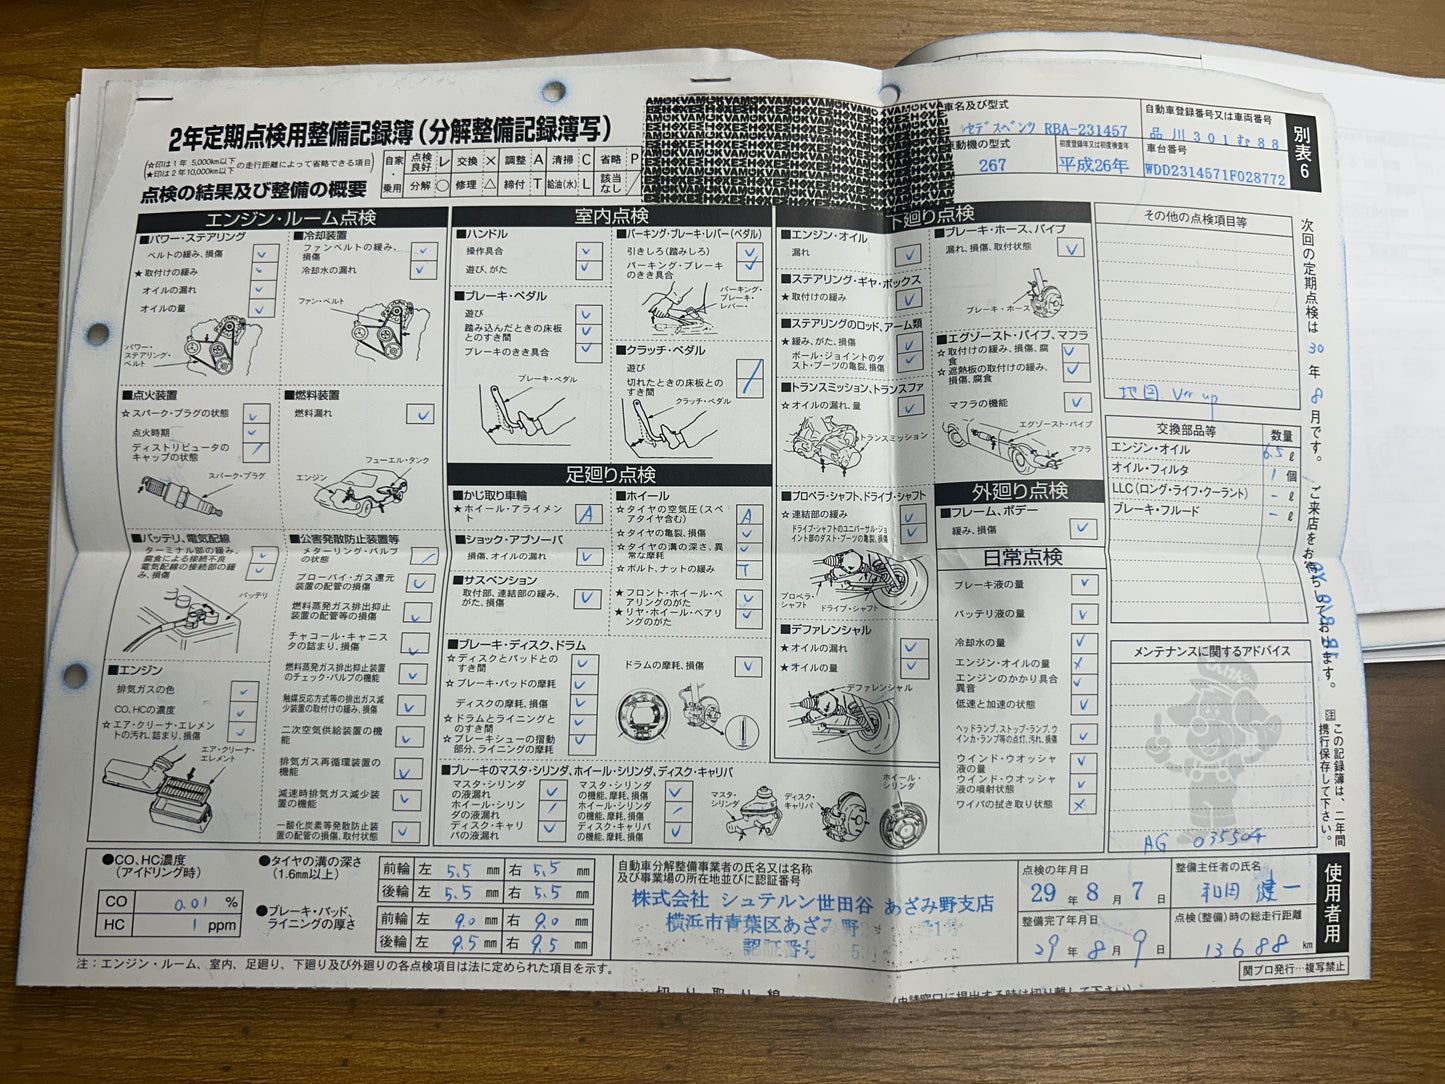 2年定期点検用整備記録簿(分解整備記録簿写)
☆印は1年 5,000km以下
★印は2年10,000km以下
の走行距離によって省略できる項目
自家・乗用
点検良好 レ 交換 × 調整 A 清掃 C 省略 P
分解 ○ 修理 △ 締付 T 給油(水) L 該当なし ／
点検の結果及び整備の概要
車名及び型式
セデスベンツ RBA-231457
自動車登録番号又は車両番号
品川301む88
動機の型式
267
初度登録年又は初度検査年
平成26年
車台番号
WDD2314571F028772
別表6
エンジン・ルーム点検
■パワー・ステアリング
ベルトの緩み、損傷
★取付けの緩み
オイルの漏れ
オイルの量
パワー・ステアリング・ベルト
■冷却装置
ファンベルトの緩み、損傷
冷却水の漏れ
ファン・ベルト
■点火装置
☆スパーク・プラグの状態
点火時期
ディストリビュータのキャップの状態
スパーク・プラグ
■燃料装置
燃料漏れ
フューエル・タンク
エンジン
■バッテリ、電気配線
ターミナル部の緩み、腐食による接続不良
電気配線の接続部の緩み、損傷
バッテリ
■エンジン
排気ガスの色
CO、HCの濃度
☆エア・クリーナ・エレメントの汚れ、詰まり、損傷
エア・クリーナ・エレメント
■公害発散防止装置等
メターリング・バルブの状態
ブローバイ・ガス還元装置の配管の損傷
燃料蒸発ガス排出抑止装置の配管等の損傷
チャコール・キャニスタの詰まり、損傷
燃料蒸発ガス排出抑止装置のチェック・バルブの機能
触媒反応方式等の排出ガス減少装置の取付けの緩み、損傷
二次空気供給装置の機能
排気ガス再循環装置の機能
減速時排気ガス減少装置の機能
一酸化炭素等発散防止装置の配管の損傷、取付状態
室内点検
■ハンドル
操作具合
遊び、がた
■ブレーキ・ペダル
遊び
踏み込んだときの床板とのすき間
ブレーキのきき具合
ブレーキ・ペダル
■パーキング・ブレーキ・レバー(ペダル)
引きしろ(踏みしろ)
パーキング・ブレーキのきき具合
パーキング・ブレーキ・レバー
■クラッチ・ペダル
遊び
切れたときの床板とのすき間
クラッチ・ペダル
足廻り点検
■かじ取り車輪
★ホイール・アライメント A
■ショック・アブソーバ
損傷、オイルの漏れ
■サスペンション
取付部、連結部の緩み、がた、損傷
■ホイール
☆タイヤの空気圧(スペアタイヤ含む) A
☆タイヤの亀裂、損傷
☆タイヤの溝の深さ、異常な摩耗
☆ボルト、ナットの緩み T
★フロント・ホイール・ベアリングのがた
★リヤ・ホイール・ベアリングのがた
■ブレーキ・ディスク、ドラム
☆ディスクとパッドとのすき間
☆ブレーキ・パッドの摩耗
ディスクの摩耗、損傷
☆ドラムとライニングとのすき間
☆ブレーキシューの摺動部分、ライニングの摩耗
ドラムの摩耗、損傷
■ブレーキのマスタ・シリンダ、ホイール・シリンダ、ディスク・キャリパ
マスタ・シリンダの液漏れ
ホイール・シリンダの液漏れ
ディスク・キャリパの液漏れ
マスタ・シリンダの機能、摩耗、損傷
ホイール・シリンダの機能、摩耗、損傷
ディスク・キャリパの機能、摩耗、損傷
マスタ・シリンダ
ディスク・キャリパ
ホイール・シリンダ
下廻り点検
■エンジン・オイル
漏れ
■ステアリング・ギヤ・ボックス
★取付けの緩み
■ステアリングのロッド、アーム類
★緩み、がた、損傷
ボール・ジョイントのダスト・ブーツの亀裂、損傷
■トランスミッション、トランスファ
☆オイルの漏れ、量
トランスミッション
■プロペラ・シャフト、ドライブ・シャフト
☆連結部の緩み
ドライブ・シャフトのユニバーサル・ジョイント部のダスト・ブーツの亀裂、損傷
プロペラ・シャフト
ドライブ・シャフト
■デファレンシャル
★オイルの漏れ
★オイルの量
デファレンシャル
■ブレーキ・ホース、パイプ
漏れ、損傷、取付状態
ブレーキ・ホース
■エグゾースト・パイプ、マフラ
☆取付けの緩み、損傷、腐食
☆遮熱板の取付けの緩み、損傷、腐食
マフラの機能
エグゾースト・パイプ
マフラ
外廻り点検
■フレーム、ボデー
緩み、損傷
日常点検
ブレーキ液の量
バッテリ液の量
冷却水の量
エンジン・オイルの量 ×
エンジンのかかり具合異音
低速と加速の状態
ヘッドランプ、ストップ・ランプ、ウインカ・ランプ等の点灯、汚れ、損傷
ウインド・ウオッシャ液の量
ウインド・ウオッシャ液の噴射状態
ワイパの拭き取り状態 ×
その他の点検項目等
地図 Ver up
交換部品等 数量
エンジン・オイル 6.5 ℓ
オイル・フィルタ 1 個
LLC(ロング・ライフ・クーラント) - ℓ
ブレーキ・フルード - ℓ
メンテナンスに関するアドバイス
AG 035504
次回の定期点検は 30 年 8 月です。 ご来店をお待ちしております。
注 この記録簿は、二年間携行保存して下さい。
使用者用
●CO、HC濃度(アイドリング時)
CO 0.01 %
HC 1 ppm
●タイヤの溝の深さ(1.6mm以上)
前輪 左 5.5 mm 右 5.5 mm
後輪 左 5.5 mm 右 5.5 mm
●ブレーキ・パッド、ライニングの厚さ
前輪 左 9.0 mm 右 9.0 mm
後輪 左 9.5 mm 右 9.5 mm
自動車分解整備事業者の氏名又は名称及び事業場の所在地並びに認証番号
株式会社 シュテルン世田谷 あざみ野支店
横浜市青葉区あざみ野
認証番号
点検の年月日
29 年 8 月 7 日
整備完了年月日
29 年 8 月 9 日
整備主任者の氏名
和田 健一
点検(整備)時の総走行距離
13688 km
注:エンジン・ルーム、室内、足廻り、下廻り及び外廻りの各点検項目は法に定められた項目を示す。
関プロ発行…複写禁止
切り取り線